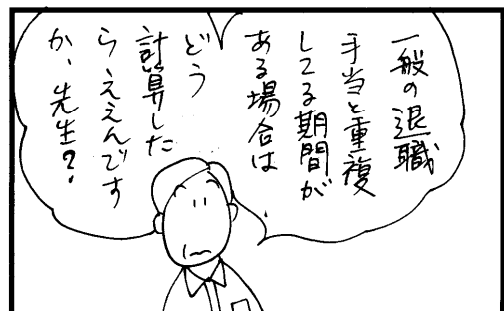 一般の退職
手当と重複
してる期間が
ある場合は
どう
計算した
らええんです
か、先生?